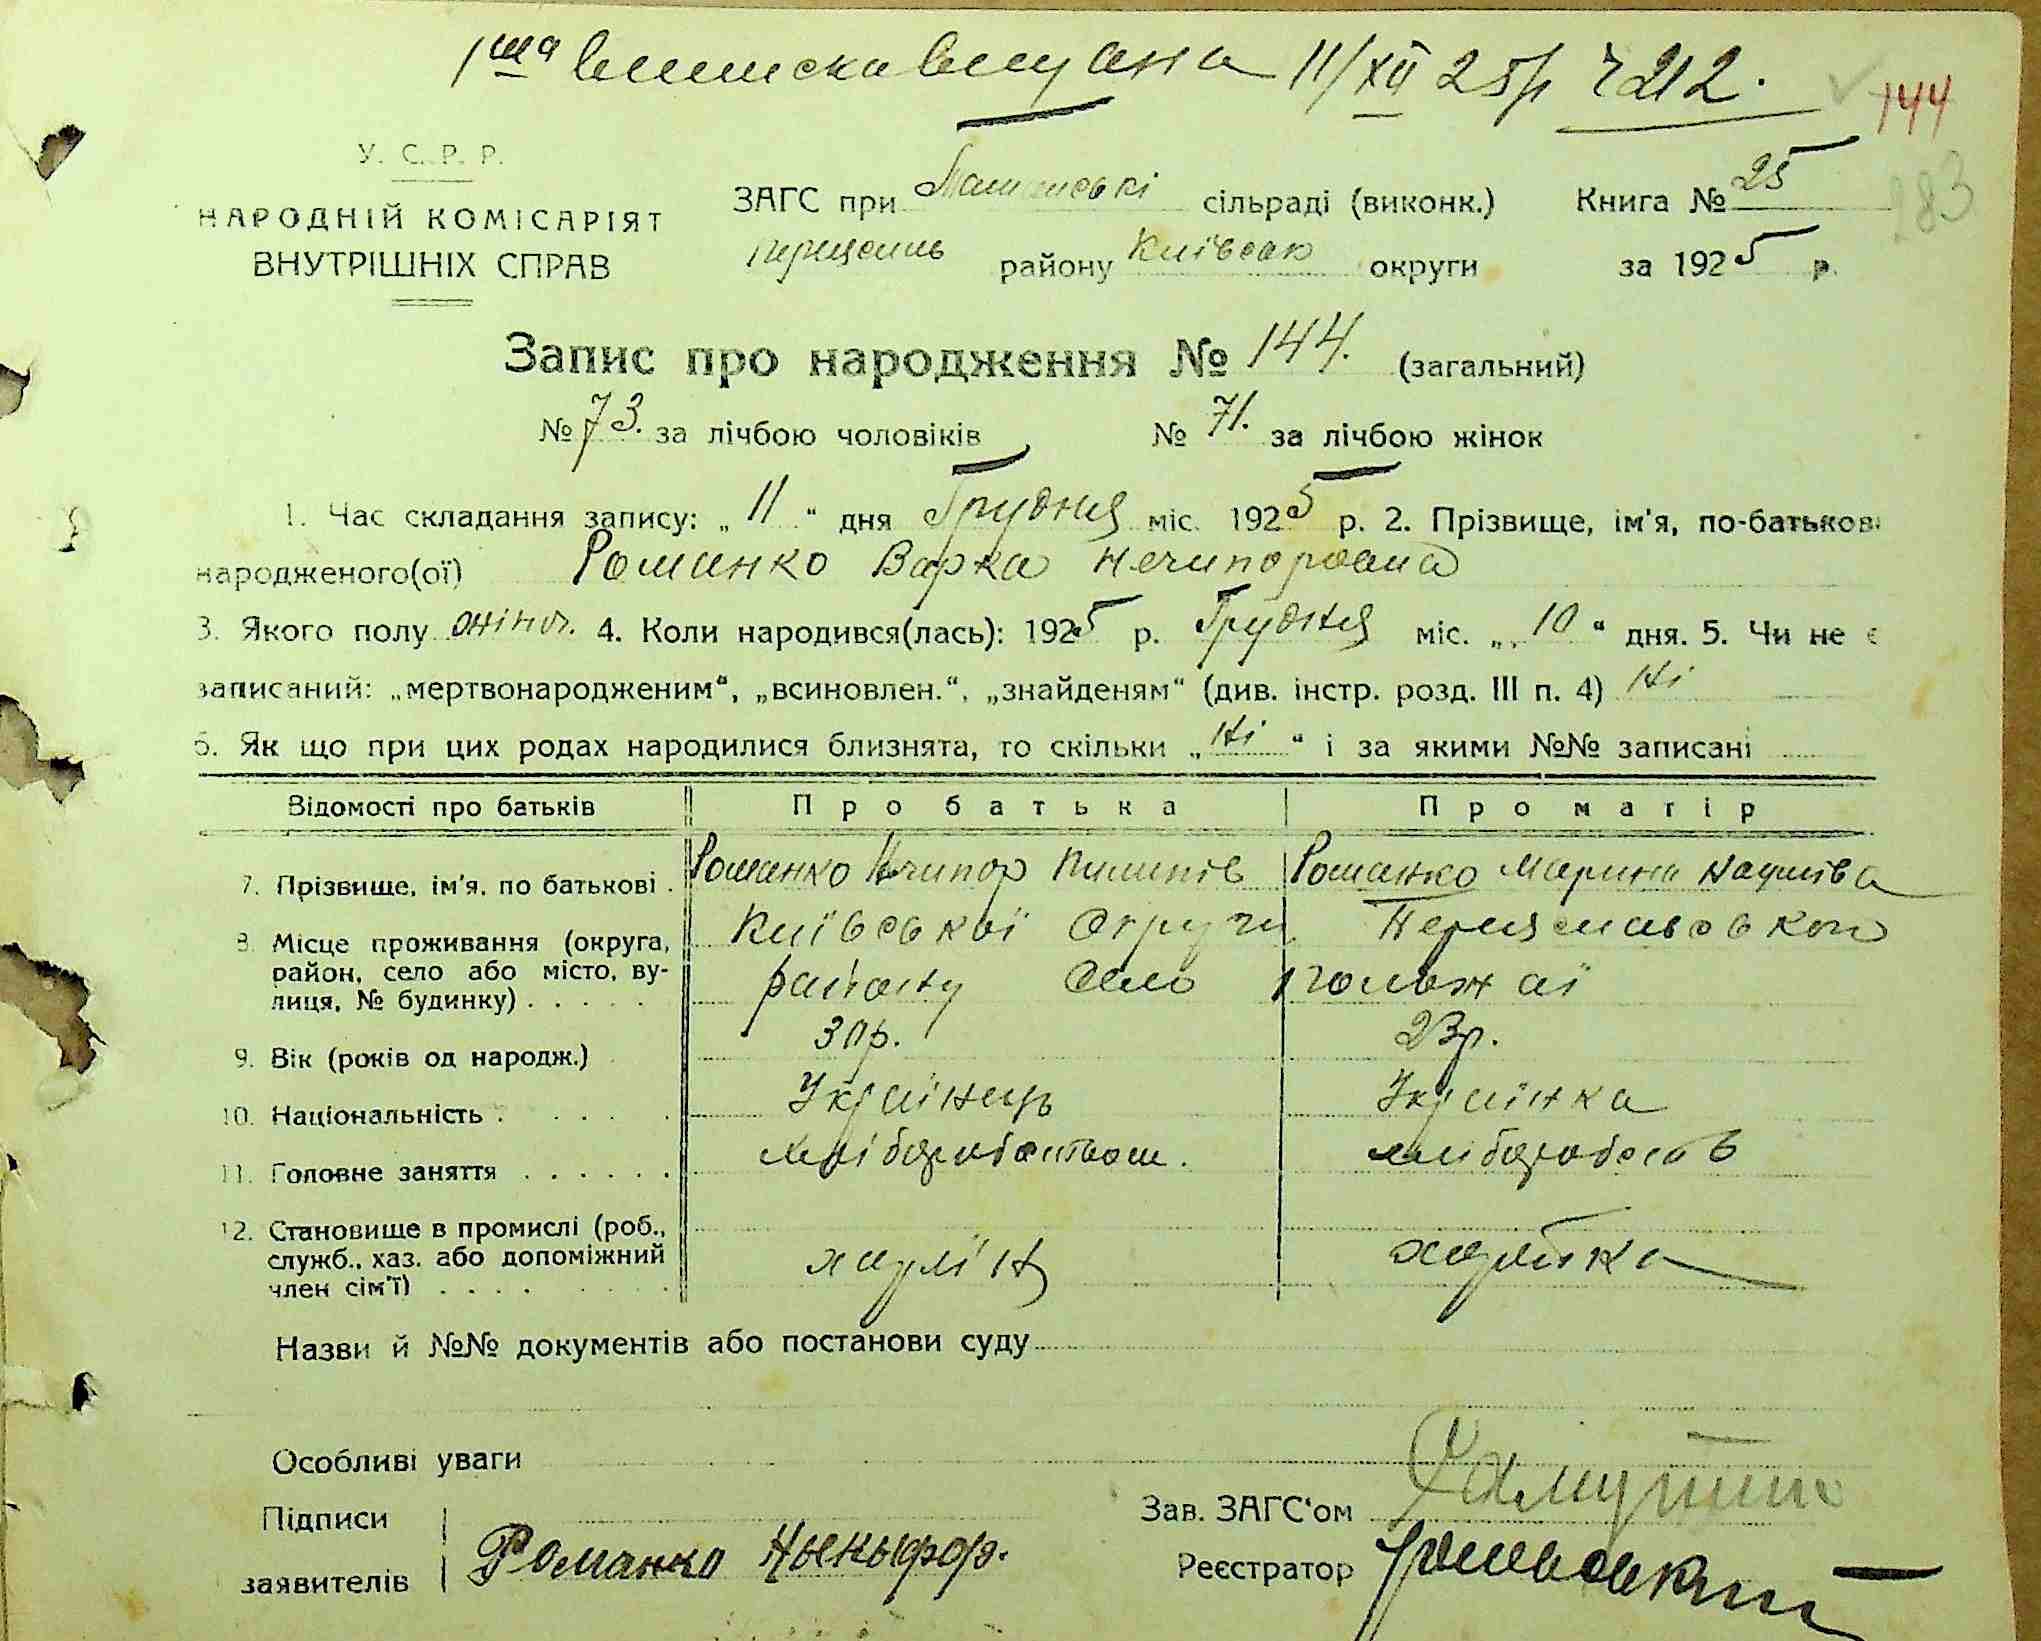 1ша виписка видана 11/XII 25р Ч 212.
144
283
У. С. Р. Р.
НАРОДНІЙ КОМІСАРІЯТ
ВНУТРІШНІХ СПРАВ
ЗАГС при сільраді (виконк.) Книга № 25
району Київськ округи за 1925 р.
Запис про народження № 144. (загальний)
№ 73. за лічбою чоловіків № 71. за лічбою жінок
1. Час складання запису: „ 11 “ дня Грудня міс. 1925 р. 2. Прізвище, ім'я, по-батькові
народженого(ої) Романко Варка Нечипоровна
3. Якого полу жіноч. 4. Коли народився(лась): 1925 р. Грудня міс. „ 10 “ дня. 5. Чи не є
записаний: „мертвонародженим“, „всиновлен.“, „знайденям“ (див. інстр. розд. III п. 4) Ні
6. Як що при цих родах народилися близнята, то скільки „ Ні “ і за якими №№ записані
Відомості про батьків Про батька Про матір
7. Прізвище, ім'я, по батькові . Романко Нечипор Пилипів Романко Марина Наумівa
8. Місце проживання (округа, район, село або місто, вулиця, № будинку) . . . . . Київської Округи
району Село
9. Вік (років од народж.) 30р. 23р.
10. Національність . . . . . Українець Українка
11. Головне заняття . . . . . . хліборобством. хліборобств
12. Становище в промислі (роб., служб., хаз. або допоміжний член сім'ї) . . . . хазяїн хазяйка
Назви й №№ документів або постанови суду
Особливі уваги
Підписи
заявителів Романко Ныкыфор.
Зав. ЗАГС'ом
Реєстратор